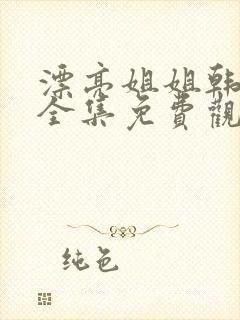 漂亮姐姐韩
全集免费觀
纯色